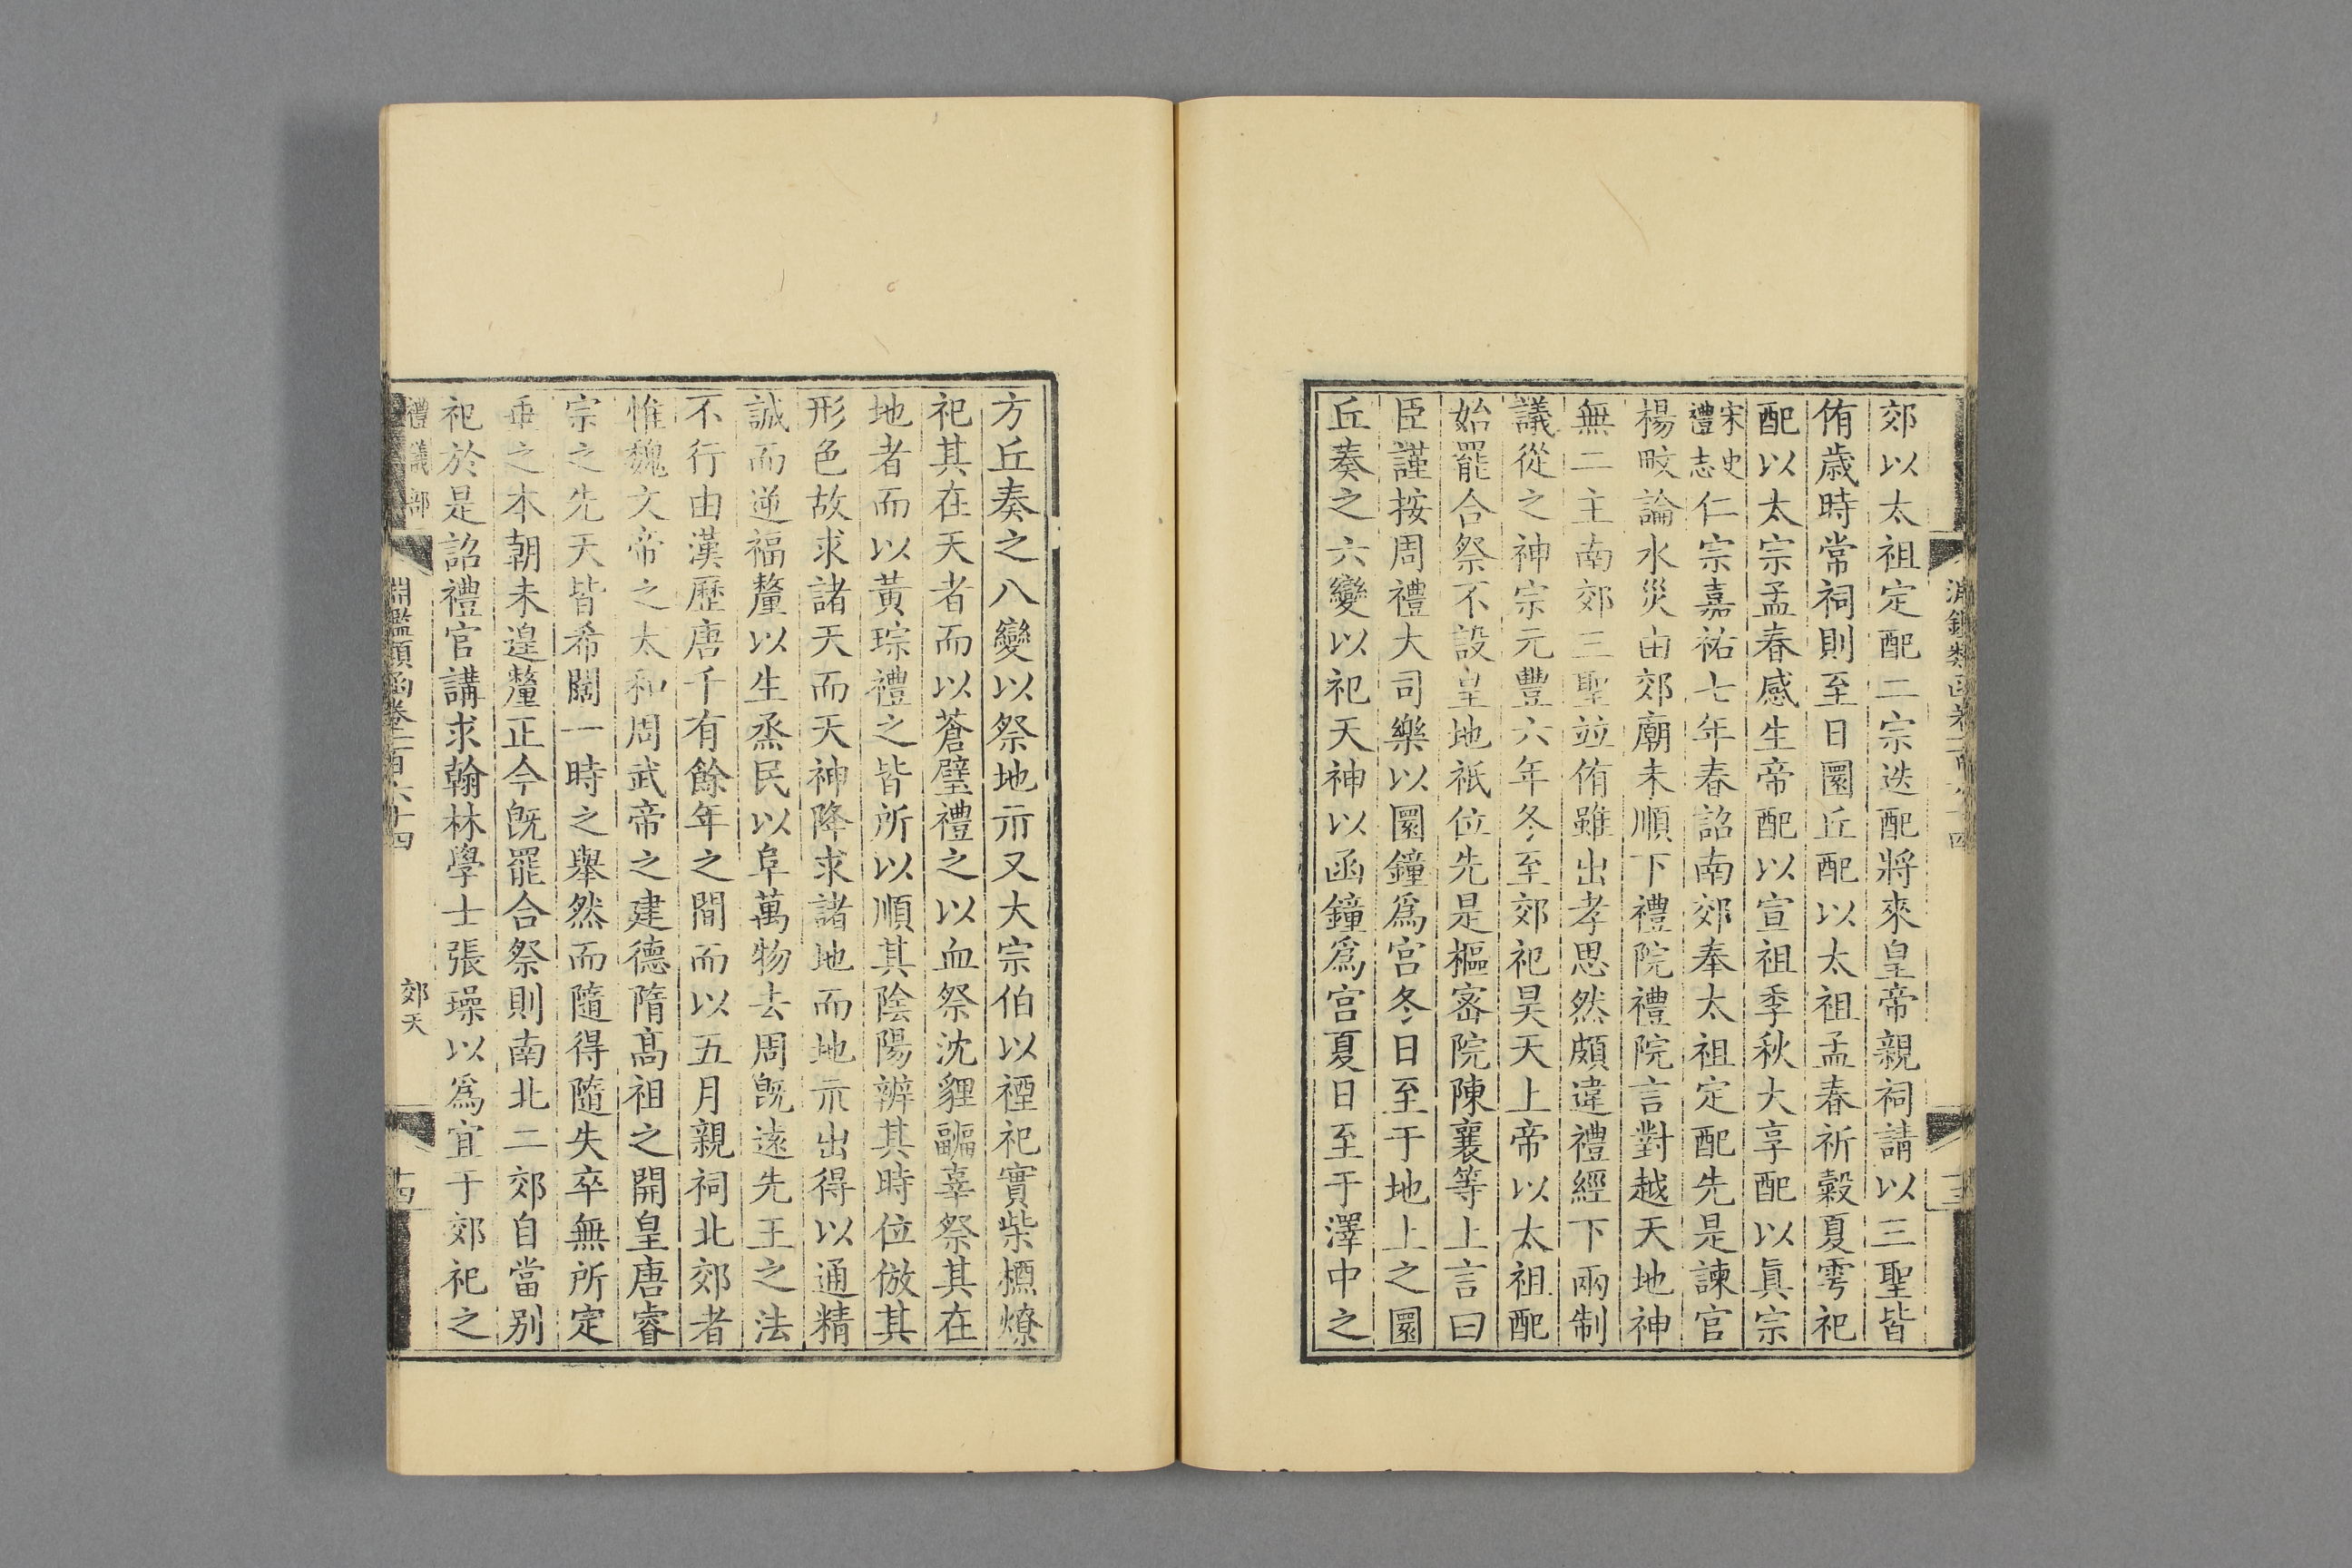 郊以太祖定配二宗迭配將來皇帝親祠請以三聖皆
侑歲時常祠則至日圜丘配以太祖孟春祈穀夏雩祀
配以太宗孟春感生帝配以宣祖季秋大享配以眞宗
宋史禮志仁宗嘉祐七年春詔南郊奉太祖定配先是諫官
楊畋論水災由郊廟未順下禮院禮院言對越天地神
無二主南郊三聖竝侑雖出孝思然頗違禮經下兩制
議從之神宗元豐六年冬至郊祀昊天上帝以太祖配
始罷合祭不設皇地祇位先是樞宻院陳襄等上言曰
臣謹按周禮大司樂以圜鐘爲宫冬日至于地上之圜
丘奏之六變以祀天神以函鐘爲宫夏日至于澤中之
方丘奏之八變以祭地示又大宗伯以禋祀實柴槱燎
祀其在天者而以蒼璧禮之以血祭沈貍疈辜祭其在
地者而以黃琮禮之皆所以順其陰陽辨其時位倣其
形色故求諸天而天神降求諸地而地示出得以通精
誠而逆福釐以生烝民以阜萬物去周旣遠先王之法
不行由漢歷唐千有餘年之間而以五月親祠北郊者
惟魏文帝之太和周武帝之建德隋髙祖之開皇唐睿
宗之先天皆希闊一時之舉然而隨得隨失卒無所定
垂之本朝未遑釐正今旣罷合祭則南北二郊自當别
祀於是詔禮官講求翰林學士張璪以爲宜于郊祀之
禮儀部
淵鑑類函卷一百六十四
郊天
十四